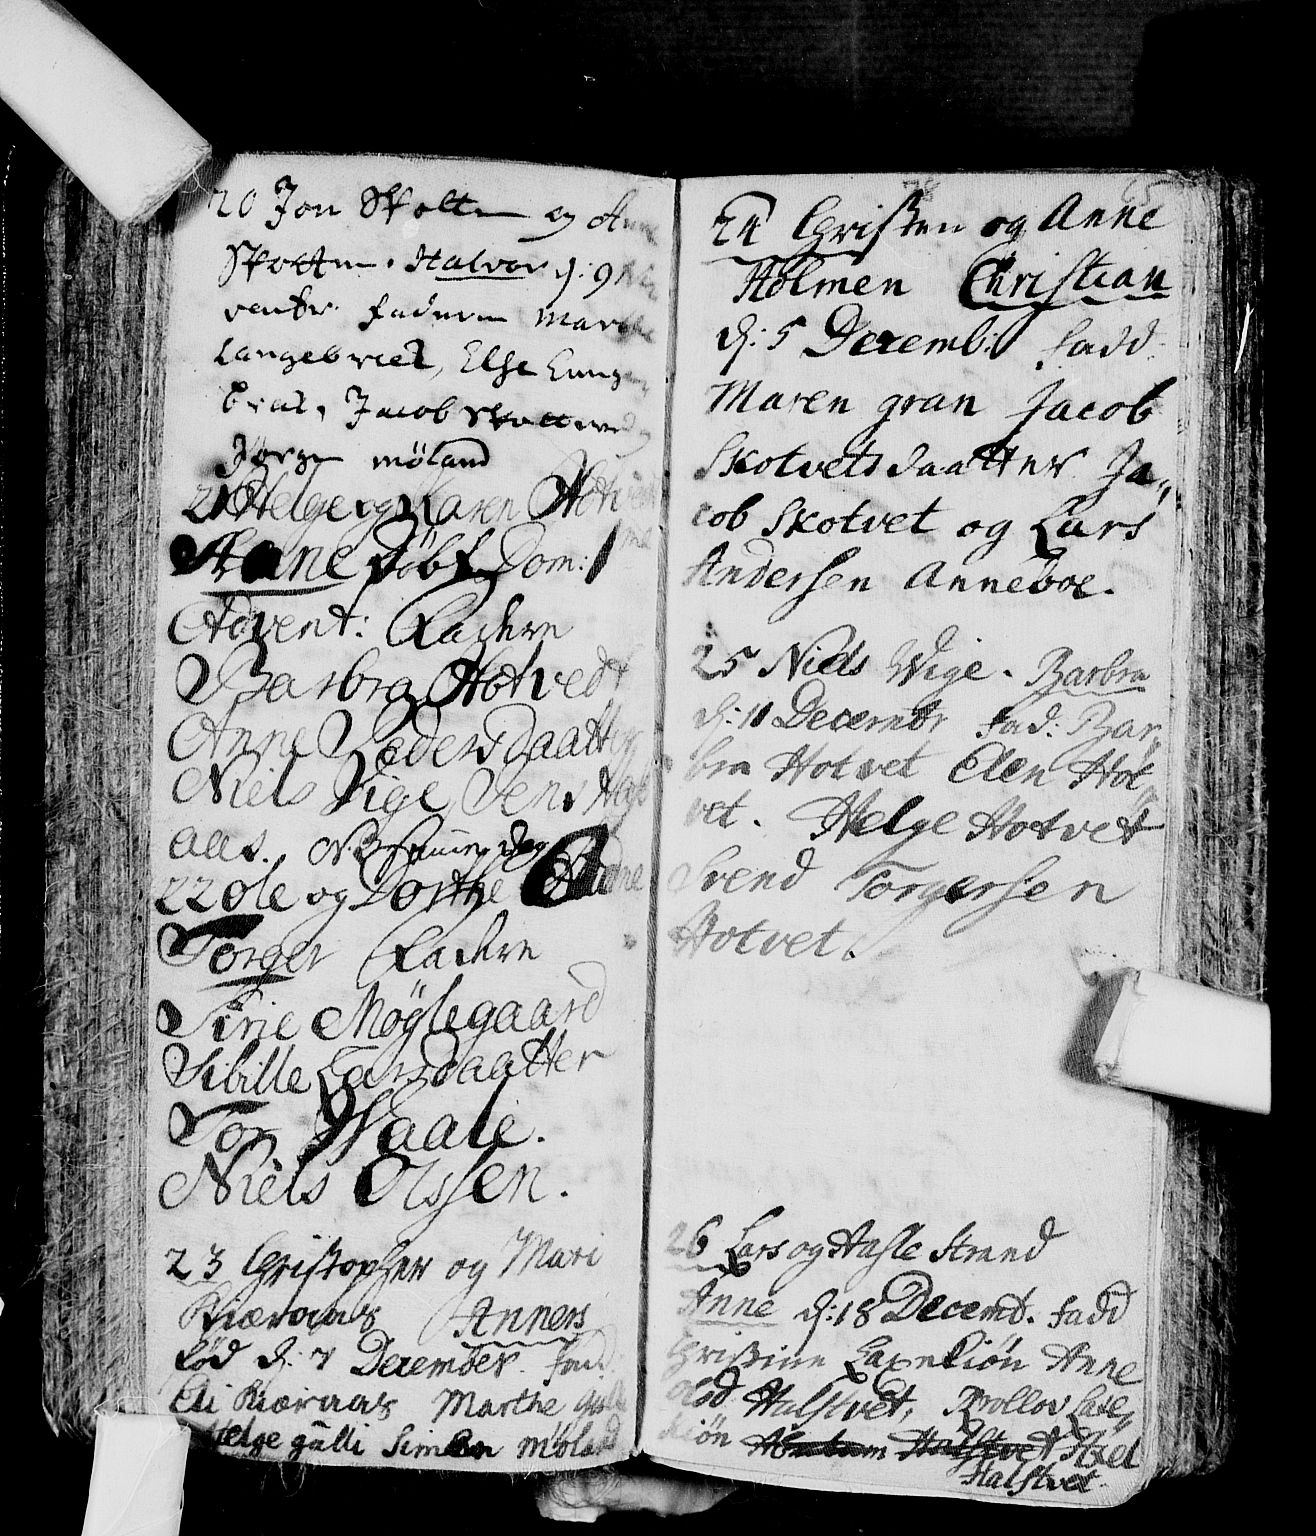 20 Jon Skotten og Anne
Skotten. Halvor d: 9
Fadderne Marthe
Langebrec, Else Lange
Jacob Skotten
Jörgen möland
21 Helge og Karen Hotvedt
Anne döbt Dom: 1
Advent: Faderne
Barbra Hotvedt
Anne Pedersdaatter
Niels Vige Jens
aas.
22 Ole og Dorthe
Torger Faderne
Sirie Møglegaard
Sibille Larsdaatter
Tor Haale.
Niels Olssen.
23 Christopher og Mari
Kieraas Anners
född d: 7 December. Fad:
Eli Kieraas Marthe gulli
Helge gülli Simen möland
24 Christen og Anne
Holmen Christian
d: 5 Decemb: Fadd
Maren gran Jacob
Skotvets daatter Ja,
cob Skotvet og Lars
Andersen Anneboe.
25 Niels Wige. Barbra
d: 11 Decembr Fad: Bar,
bra Hotvet Elen Hot,
vet. Helge Hotvet
Svend Torgersen
Hotvet.
26 Lars og Aasle Strand
Anne d: 18 Decemb. Fadd
Christine Laxekiön Anne
Halstvet, Rollov Laxe,
kiön Abraham Halstvet Axel
Halstvet.